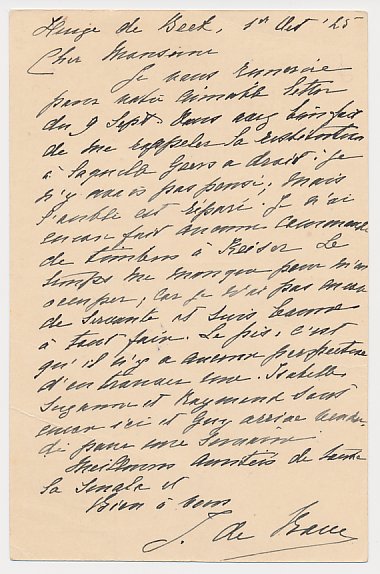 de Beek, 1er Oct '25
Cher Monsieur
Je vous remercie
pour votre aimable lettre
du 9 Sept. Vous avez bien fait
de me rappeler la restitution
à laquelle a droit; je
n'y avais pas pensé, mais
l'oubli est réparé. Je n'ai
encore fait aucune commande
de timbres à Keiser. Le
temps me manque pour m'en
occuper, car je n'ai pas encore
de servante et suis bonne
à tout faire. Le pis, c'est
qu'il n'y a aucune perspective
d'en trouver une. Isabelle
Suzanne et Raymond sont
encore ici et Guy arrive vendre-
di pour une semaine.
Meilleures amitiés de toute
la et
bien à vous
J. de